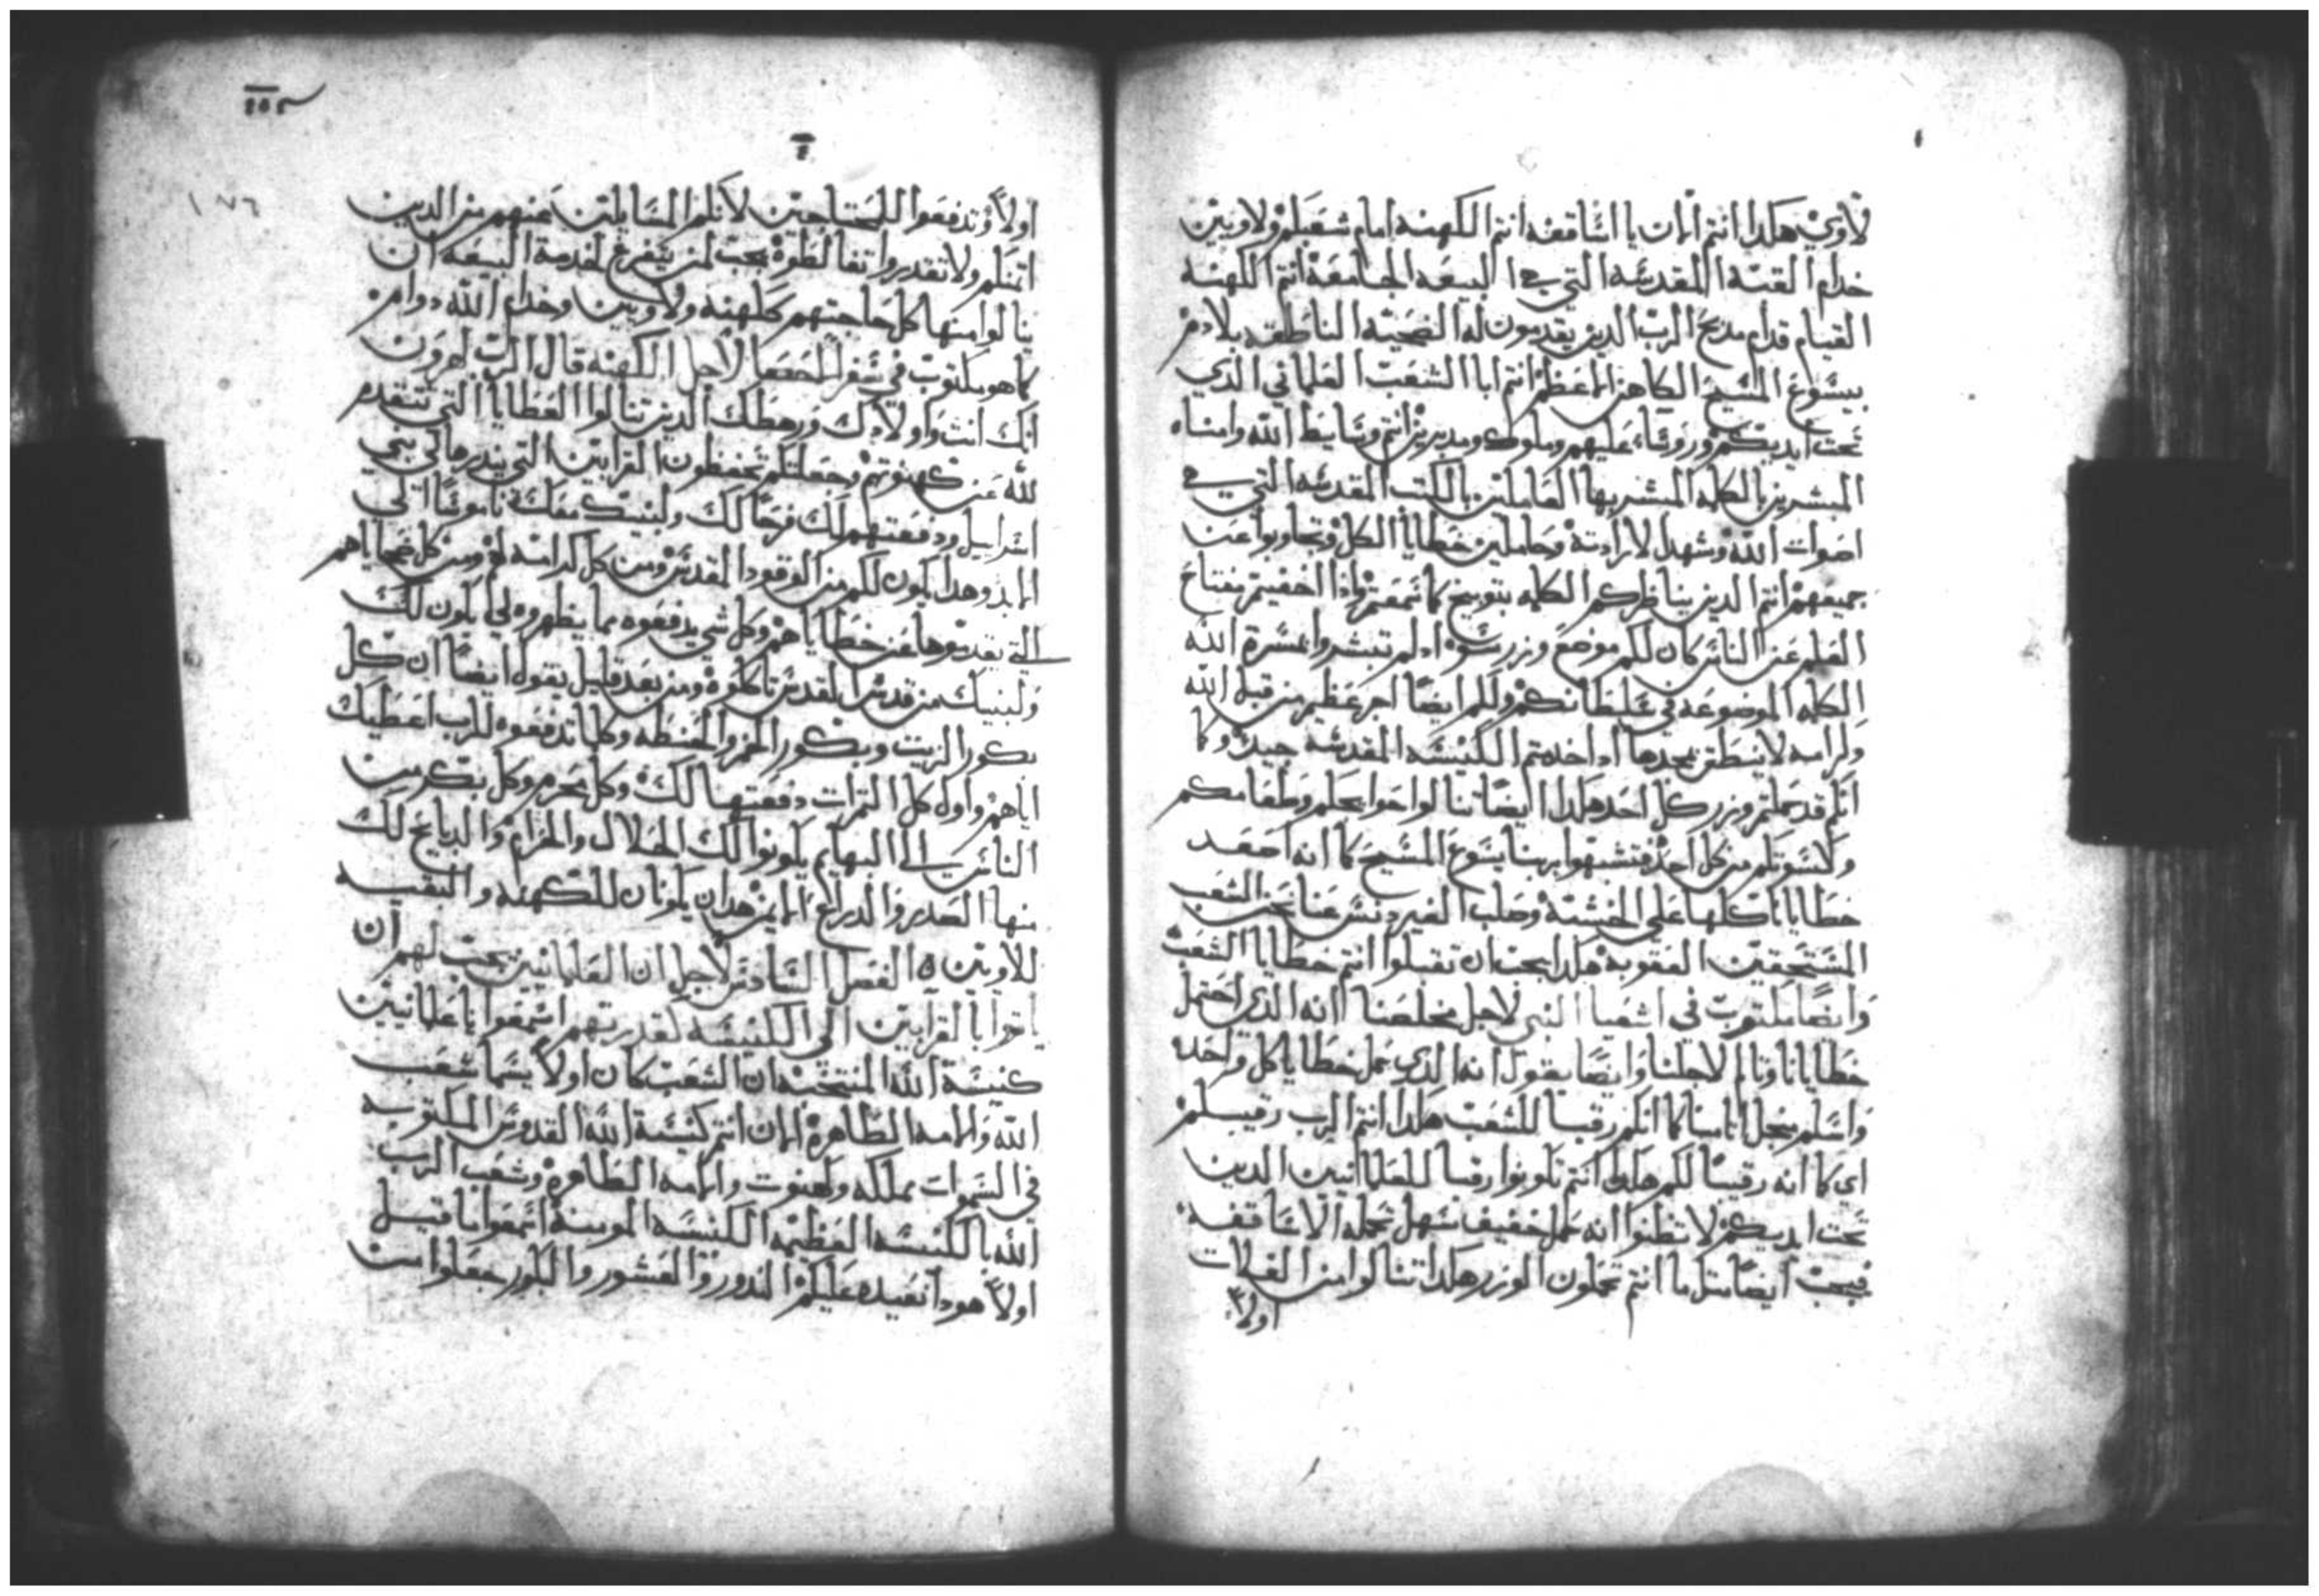 لاوي هكدا انتم الان يا اساقفه انتم الكهنه امام شعبكم ولاويين
خدام القبه المقدسه التي هي البيعه الجامعه انتم الكهنه
القيام قدام مدبح الرب الدين يقدمون له الضحيه الناطقه بلا دم
بيسوع المسيح الكاهن الاعظم انتم ابا الشعب العلماني الدي
تحت ايديكم وروسا عليهم وملوك ومدبرين انتم وسايط الله وامناه
المبشرين بالكلمه المبشر بها العاملين بالكتب المقدسه التي هي
اصوات الله وشهدا لارادته وحاملين خطايا الكل وتجاوبوا عن
جميعهم انتم الدين يناظركم الكلمه بتوبيخ كما سمعتم وادا اخفيتم مفتاح
العلم عن الناس كان لكم موضع وزر سوه اد لم تبشروا بمسرة الله
الكلمه الموضوعه في سلطانكم ولكم ايضا اجر عظيم من قبل الله
وكرامه لا ينطق بمجدها ادا خدمتم الكنيسه المقدسه جيدا وكما
انكم قد حملتم وزر كل احد هكدا ايضا تنالوا حوايجكم وطعامكم
وكسوتكم من كل احد فتشبهوا بربنا يسوع المسيح كما انه اصعد
خطايانا كلها على الخشبه وصلب الغير دنس عنا نحن الشعب
المستحقين العقوبه هكدا يجب ان تقبلوا انتم خطايا الشعب
وايضا مكتوب في اشعيا النبي لاجل مخلصنا انه الدي احتمل
خطايانا وتالم لاجلنا وايضا يقول انه الدي حمل خطايا كل واحد
واسلم من اجل اتامنا كما انكم رقبا للشعب هكدا انتم الرب رقيبكم
اي كما انه رقيبا لكم هكدا انتم تكونوا رقبا للعلمانيين الدين
تحت ايديكم لا تظنوا انه حمل خفيف سهل تحمله الاساقفه
فيجب ايضا متل ما انتم تحملون الوزر هكدا تنالوا من الغلات
اولا
٢٥٣
١٧٦
اولا وتدفعوا للمحتاجين لانكم المسايلين عنهم من الدين
اتمنكم ولا تقدروا تغالطوه يجب لمن يتفرغ لخدمة البيعه ان
ينالوا منها كل حاجتهم كالهنه ولاويين وخدام الله دوامه
كما هو مكتوب في سفر لاجل الكهنه قال الرب لهرون
انك انت واولادك ورهطك الدين تنالوا العطايا التي تتقدم
لله عن كهنوتهم وجعلتكم تحفظون القرابين التي يندرها لي بني
اسراييل ودفعتهم لك فرحا لك ولبنيك معك ناموسا الى
الابد وهدا يكون لكم من الوقود المقدس ومن كل كرامته لهم ومن كل ضحاياهم
التي يقدموها عن خطاياهم وكل شي يدفعوه مما يظهروه لي يكون لك
ولبنيك من قدس القدس تاكلوه ومن بعد قليل يقول ايضا ان كل
بكور الزيت وبكور الخمر والحنطه وكلما تدفعوه للرب اعطيك
اياهم واول كل التمرات دفعتها لك وكل محرم وكل بكر من
الناس الى البهايم يكونوا لك الحلال والحرام والدبايح لك
منها الصدر والدراع الايمن هدان يكونان للكهنه والبقيه
للاويين ه الفصل السادس لاجل ان العلمانيين يجب لهم ان
ياتوا بالقرابين الى الكنيسه كقدرتهم اسمعوا يا علمانيين
كنيسة الله المنتخبه ان الشعب كان اولا يسما شعب
الله والامه الطاهره الان انتم كنيسة الله القدوس المكتوبه
في السموات مملكه وكهنوت والامه الطاهره وشعب الرب
الله يا الكنيسه العظيمه الكنيسه المومنه اسمعوا ما قيل
اولا هودا نعيده عليكم الندور والعشور والبكور جعلوا من